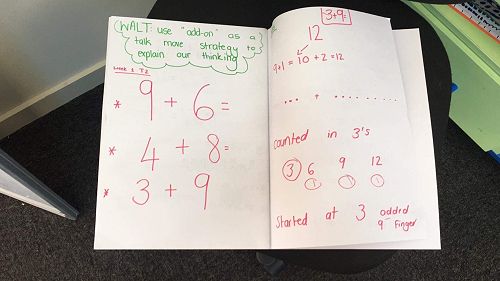 WALT: use "add-on" as a
talk move strategy to
explain our thinking
Week 2 T2
* 9 + 6 =
* 4 + 8 =
* 3 + 9
3+9=
12
9+1 = 10 + 2 = 12
.... + .........
counted in 3's
3 6 9 12
Started at 3 added
9 Finger